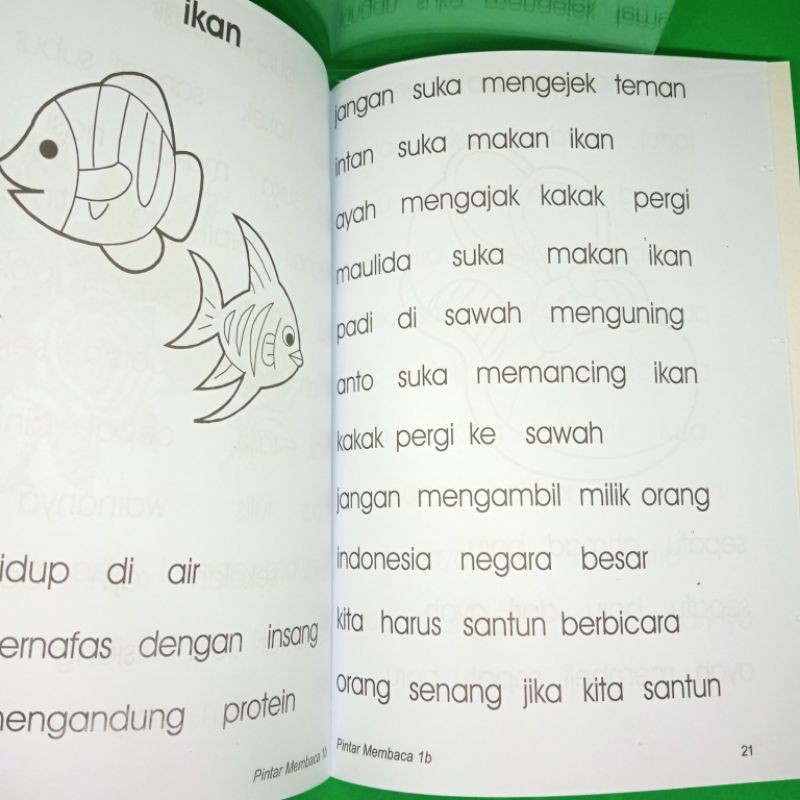 ikan
di air
dengan insang
protein
Pintar Membaca
jangan suka mengejek teman
intan suka makan ikan
ayah mengajak kakak pergi
maulida suka makan ikan
padi di sawah menguning
anto suka memancing ikan
kakak pergi ke sawah
jangan mengambil milik orang
indonesia negara besar
kita harus santun berbicara
orang senang jika kita santun
Pintar Membaca 1b
21